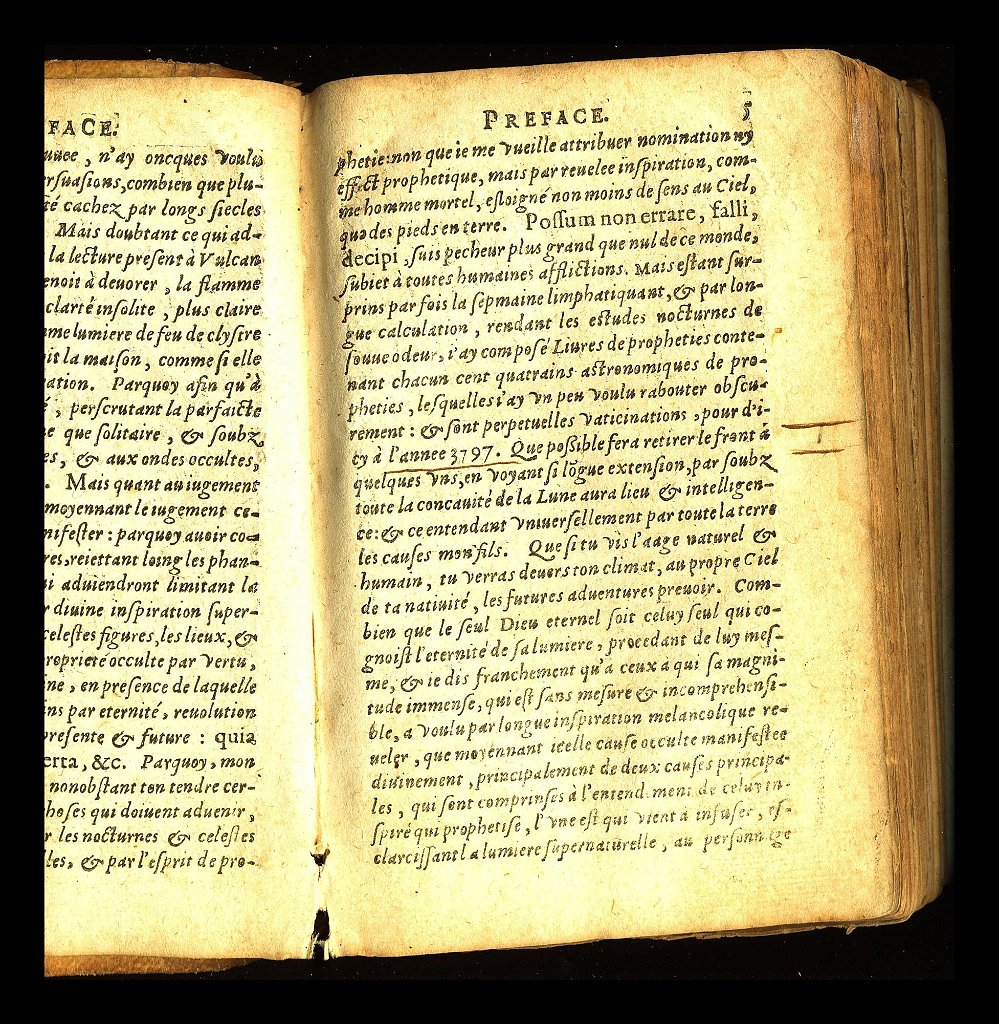 FACE.
uuee, n'ay oncques voulu
ersuasions, combien que plu-
té cachez par longs siecles
Mais doubtant ce qui ad-
la lecture present à Vulcan
enoit à deuorer, la flamme
clarté insolite, plus claire
me lumiere de feu de clystre
it la maison, comme si elle
ration. Parquoy afin qu'à
, perscrutant la parfaicte
e que solitaire, & soubz
es, & aux ondes occultes,
. Mais quant au iugement
moyennant le iugement ce-
nifester: parquoy auoir co-
res, reiettant loing les phan-
i aduiendront limitant la
r diuine inspiration super-
celestes figures, les lieux, &
roprieté occulte par vertu,
ine, en presence de laquelle
ins par eternité, reuolution
presente & future: quia
erta, &c. Parquoy, mon
nonobstant ton tendre cer-
hoses qui doiuent aduenir,
r les nocturnes & celestes
les, & par l'esprit de pro-
PREFACE. 5
phetie: non que ie me vueille attribuer nomination ny
effect prophetique, mais par reuelee inspiration, com-
me homme mortel, esloigné non moins de sens au Ciel,
que des pieds en terre. Possum non errare, falli,
decipi, suis pecheur plus grand que nul de ce monde,
subiet à toutes humaines afflictions. Mais estant sur-
prins par fois la sepmaine limphatiquant, & par lon-
gue calculation, rendant les estudes nocturnes de
souue odeur, i'ay composé Liures de propheties conte-
nant chacun cent quatrains astronomiques de pro-
pheties, lesquelles i'ay vn peu voulu rabouter obscu-
rement: & sont perpetuelles vaticinations, pour d'i-
cy à l'annee 3797. Que possible fera retirer le front à
quelques vns, en voyant si lõgue extension, par soubz
toute la concauité de la Lune aura lieu & intelligen-
ce: & ce entendant vniuersellement par toute la terre
les causes mon fils. Que si tu vis l'aage naturel &
humain, tu verras deuers ton climat, au propre Ciel
de ta natiuité, les futures aduentures preuoir. Com-
bien que le seul Dieu eternel soit celuy seul qui co-
gnoist l'eternité de sa lumiere, procedant de luy mes-
me, & ie dis franchement qu'à ceux à qui sa magni-
tude immense, qui est sans mesure & incomprehensi-
ble, a voulu par longue inspiration melancolique re-
ueler, que moyennant icelle cause occulte manifestee
diuinement, principalement de deux causes principa-
les, qui sont comprinses à l'entendement de celuy in-
spiré qui prophetise, l'vne est qui vient à infuser, es-
clarcissant la lumiere supernaturelle, au personnage